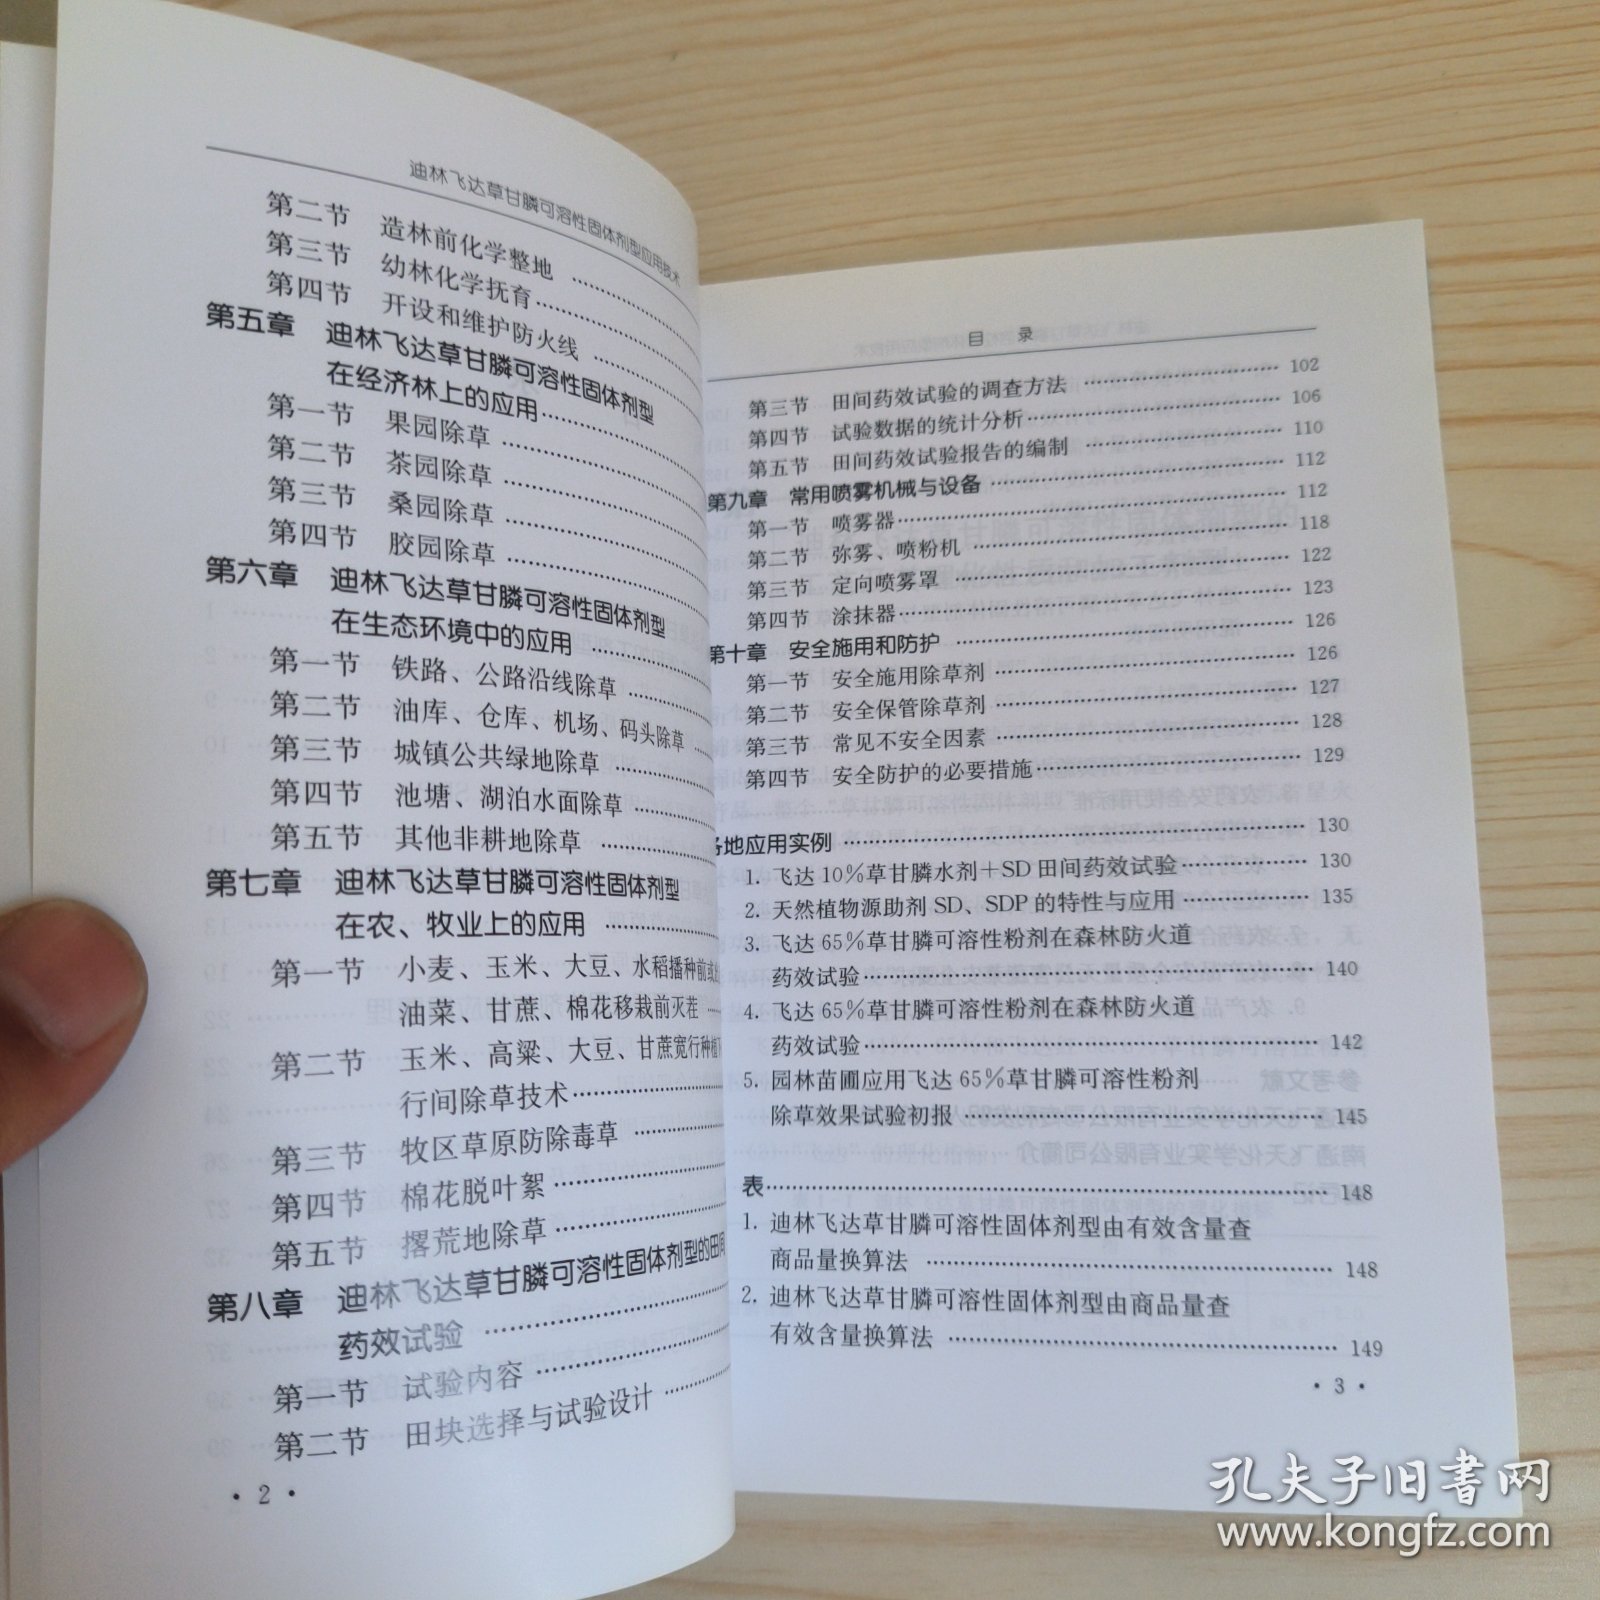 迪林飞达草甘膦可溶性固体剂型应用技术
第二节 造林前化学整地
第三节 幼林化学抚育
第四节 开设和维护防火线
第五章 迪林飞达草甘膦可溶性固体剂型
在经济林上的应用
第一节 果园除草
第二节 茶园除草
第三节 桑园除草
第四节 胶园除草
第六章 迪林飞达草甘膦可溶性固体剂型
在生态环境中的应用
第一节 铁路、公路沿线除草
第二节 油库、仓库、机场、码头除草
第三节 城镇公共绿地除草
第四节 池塘、湖泊水面除草
第五节 其他非耕地除草
第七章 迪林飞达草甘膦可溶性固体剂型
在农、牧业上的应用
第一节 小麦、玉米、大豆、水稻播种前或
油菜、甘蔗、棉花移栽前灭茬
第二节 玉米、高粱、大豆、甘蔗宽行种植
行间除草技术
第三节 牧区草原防除毒草
第四节 棉花脱叶絮
第五节 撂荒地除草
第八章 迪林飞达草甘膦可溶性固体剂型的田间
药效试验
第一节 试验内容
第二节 田块选择与试验设计
· 2 ·
目 录
第三节 田间药效试验的调查方法 102
第四节 试验数据的统计分析 106
第五节 田间药效试验报告的编制 110
第九章 常用喷雾机械与设备 112
第一节 喷雾器 112
第二节 弥雾、喷粉机 118
第三节 定向喷雾罩 122
第四节 涂抹器 123
第十章 安全施用和防护 126
第一节 安全施用除草剂 126
第二节 安全保管除草剂 127
第三节 常见不安全因素 128
第四节 安全防护的必要措施 129
各地应用实例 130
1. 飞达10%草甘膦水剂+SD田间药效试验 130
2. 天然植物源助剂SD、SDP的特性与应用 135
3. 飞达65%草甘膦可溶性粉剂在森林防火道
药效试验 140
4. 飞达65%草甘膦可溶性粉剂在森林防火道
药效试验 142
5. 园林苗圃应用飞达65%草甘膦可溶性粉剂
除草效果试验初报 145
表 148
1. 迪林飞达草甘膦可溶性固体剂型由有效含量查
商品量换算法 148
2. 迪林飞达草甘膦可溶性固体剂型由商品量查
有效含量换算法 149
· 3 ·
孔夫子旧书网
www.kongfz.com